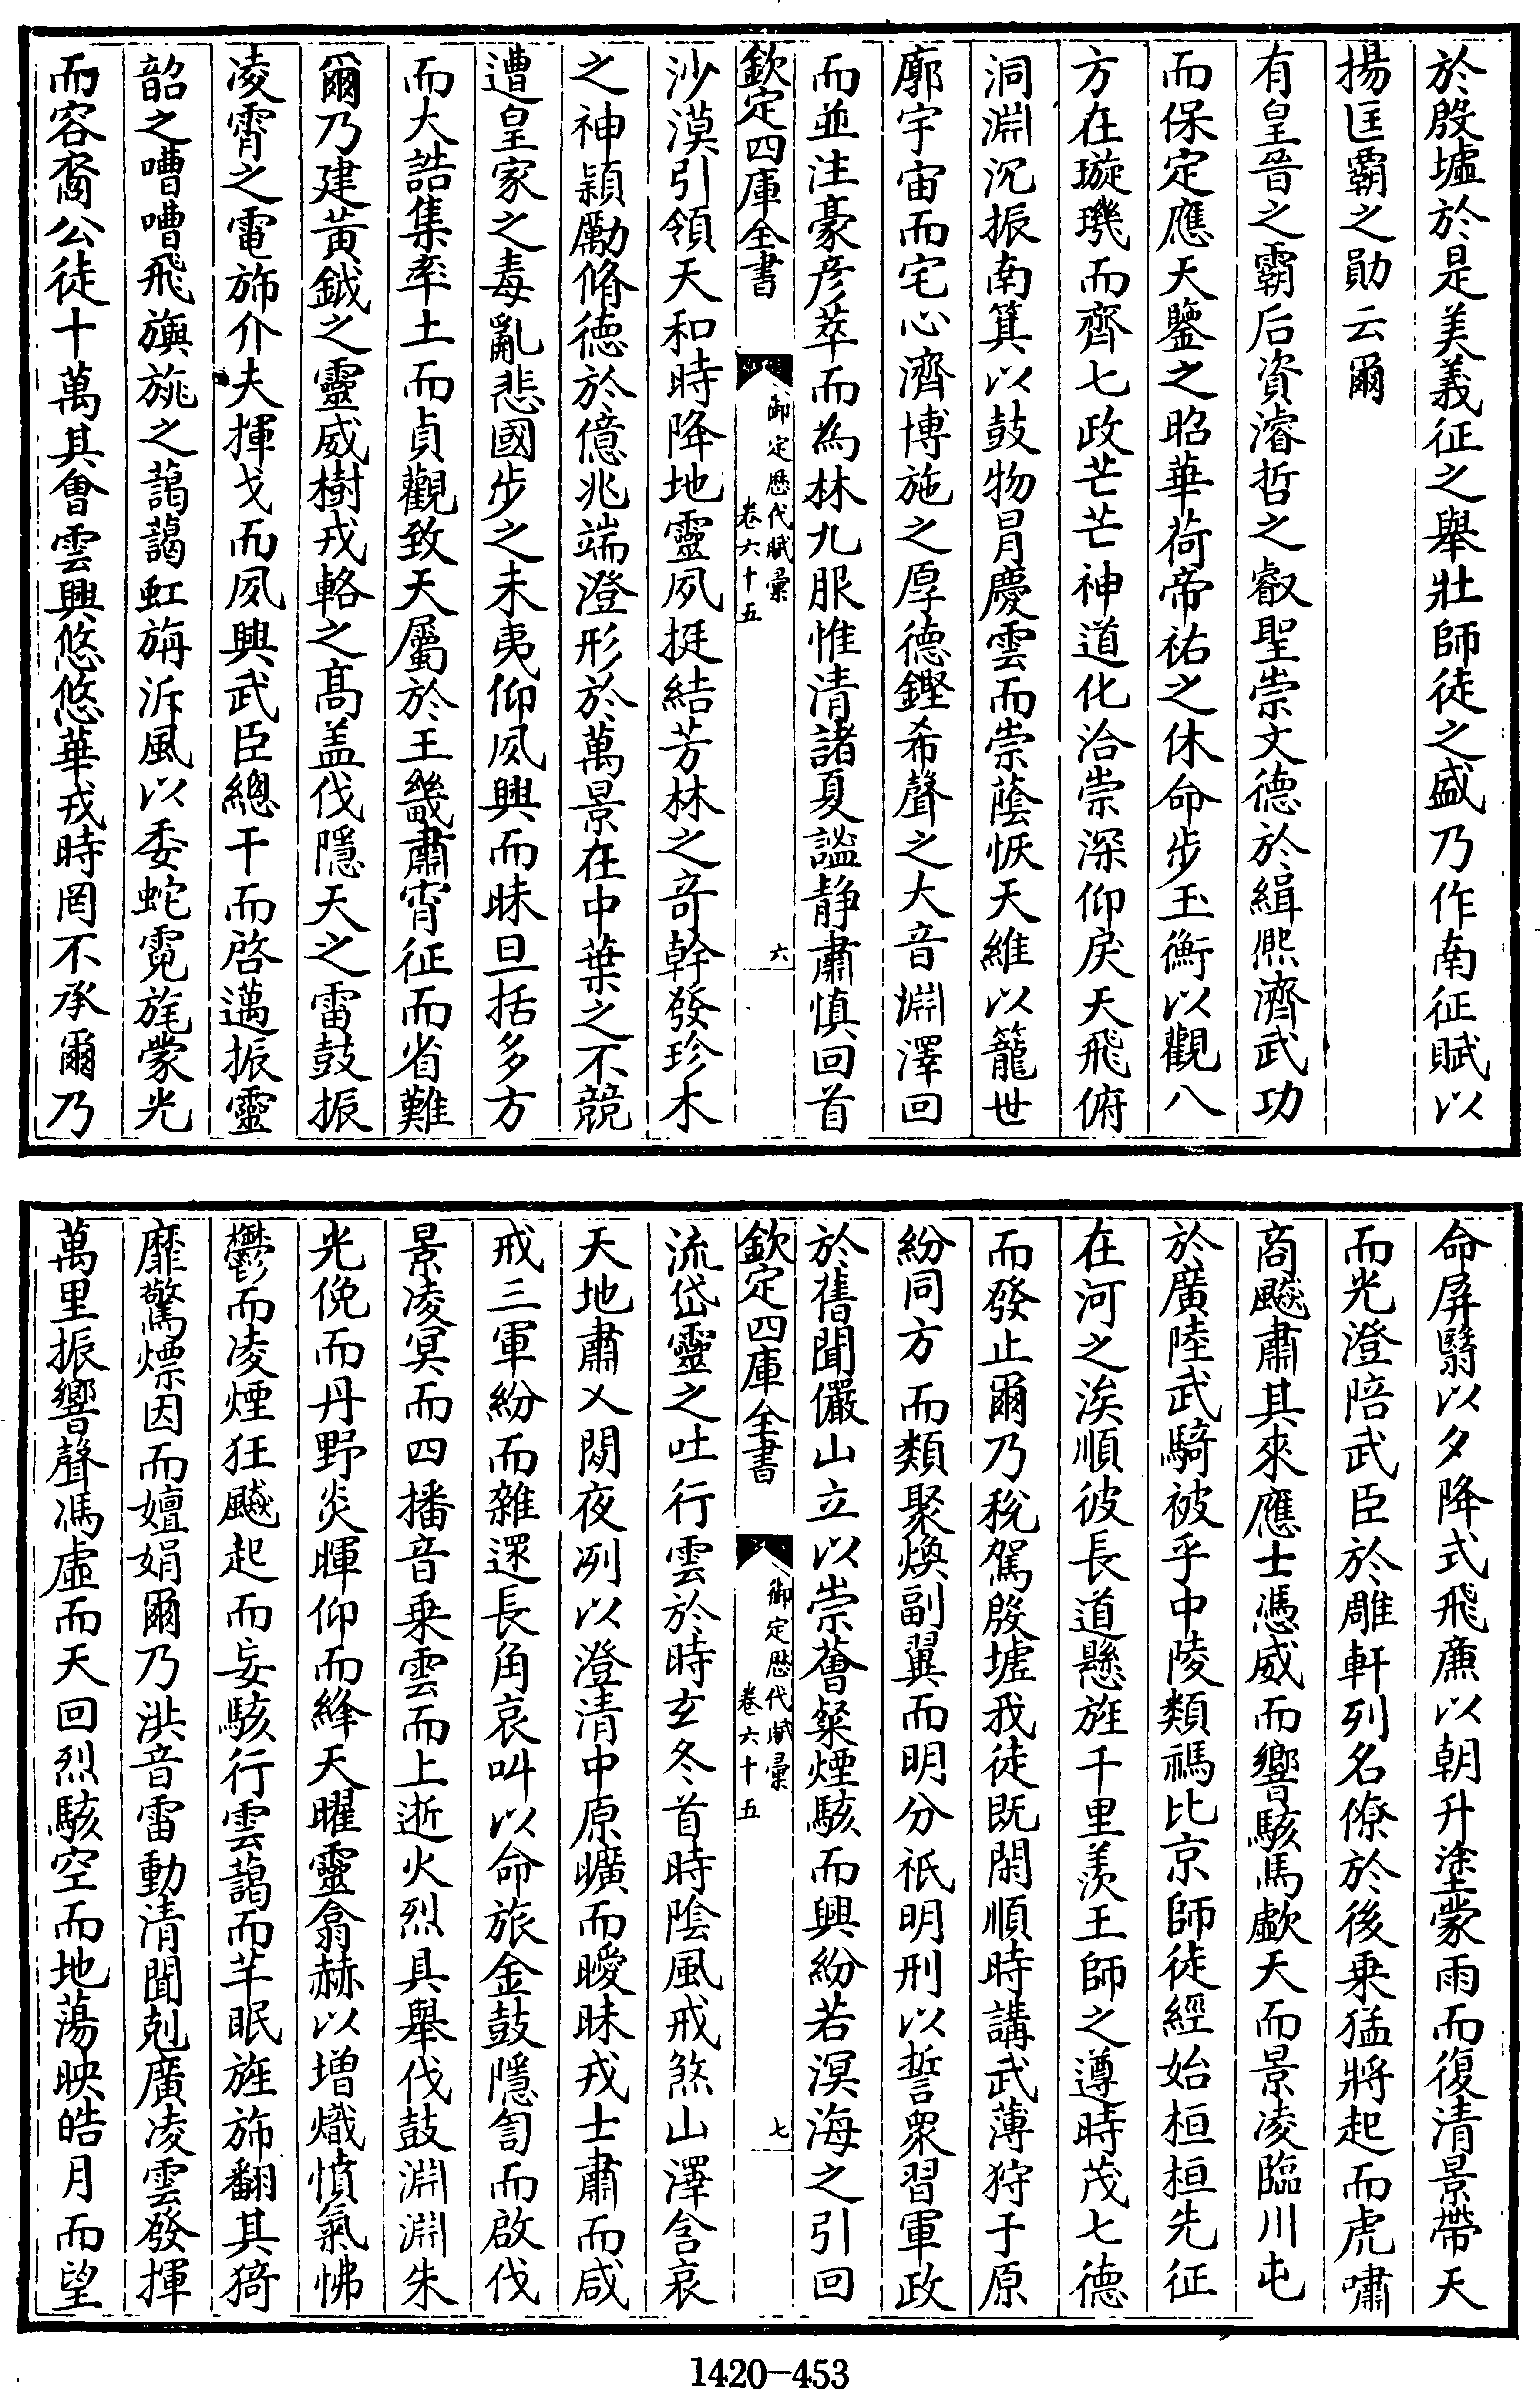 於殷墟於是美義征之舉壯師徒之盛乃作南征賦以
揚匡霸之勛云爾
有皇晉之霸后資濬哲之叡聖崇文德於緝熙濟武功
而保定應天鑒之昭華荷帝祐之休命步玉衡以觀八
方在璇璣而齊七政芒芒神道化洽崇深仰戾天飛俯
洞淵沉振南箕以鼓物冐慶雲而崇蔭恢天維以籠世
廓宇宙而宅心濟博施之厚德鏗希聲之大音淵澤回
而並注豪彦萃而為林九服惟清諸夏謐静肅慎回首
欽定四庫全書
御定歴代賦彙
卷六十五
六
沙漠引領天和時降地靈夙挺結芳林之竒幹發珍木
之神穎勵脩德於億兆端澄形於萬景在中葉之不競
遭皇家之毒亂悲國步之未夷仰夙興而昧旦括多方
而大誥集率土而貞觀致天屬於王畿肅宵征而省難
爾乃建黃鉞之靈威樹戎輅之髙盖伐隱天之雷鼓振
凌霄之電斾介夫揮戈而夙興武臣總干而啓邁振靈
韶之嘈嘈飛旟旐之藹藹虹旃泝風以委蛇霓旄蒙光
而容裔公徒十萬其㑹雲興悠悠華戎時罔不承爾乃
命屏翳以夕降式飛廉以朝升塗蒙雨而復清景帶天
而光澄陪武臣於雕軒列名僚於後乗猛將起而虎嘯
商飈肅其來應士憑威而響駭馬歔天而景凌臨川屯
於廣陸武騎被乎中陵類禡比京師徒經始桓桓先征
在河之涘順彼長道懸旌千里羨王師之遵時茂七德
而發止爾乃稅駕殷墟我徒既閑順時講武薄狩于原
紛同方而類聚煥副翼而明分祇明刑以誓衆習軍政
於舊聞儼山立以崇薈粲煙駭而興紛若溟海之引回
欽定四庫全書
御定歴代賦彙
卷六十五
七
流岱靈之吐行雲於時玄冬首時隂風戒煞山澤含哀
天地肅乂閟夜冽以澄清中原曠而曖昧戎士肅而咸
戒三軍紛而雜遝長角哀叫以命旅金鼓隱訇而啟伐
景凌冥而四播音乗雲而上逝火烈具舉伐鼓淵淵朱
光俛而丹野炎暉仰而絳天曜靈翕赫以增熾憤氣怫
鬱而凌煙狂飇起而妄駭行雲藹而芊眠旌斾翻其猗
靡驚熛因而嬗娟爾乃洪音雷動清聞剋廣凌雲發揮
萬里振響聲馮虛而天回烈駭空而地蕩映皓月而望
1420-453